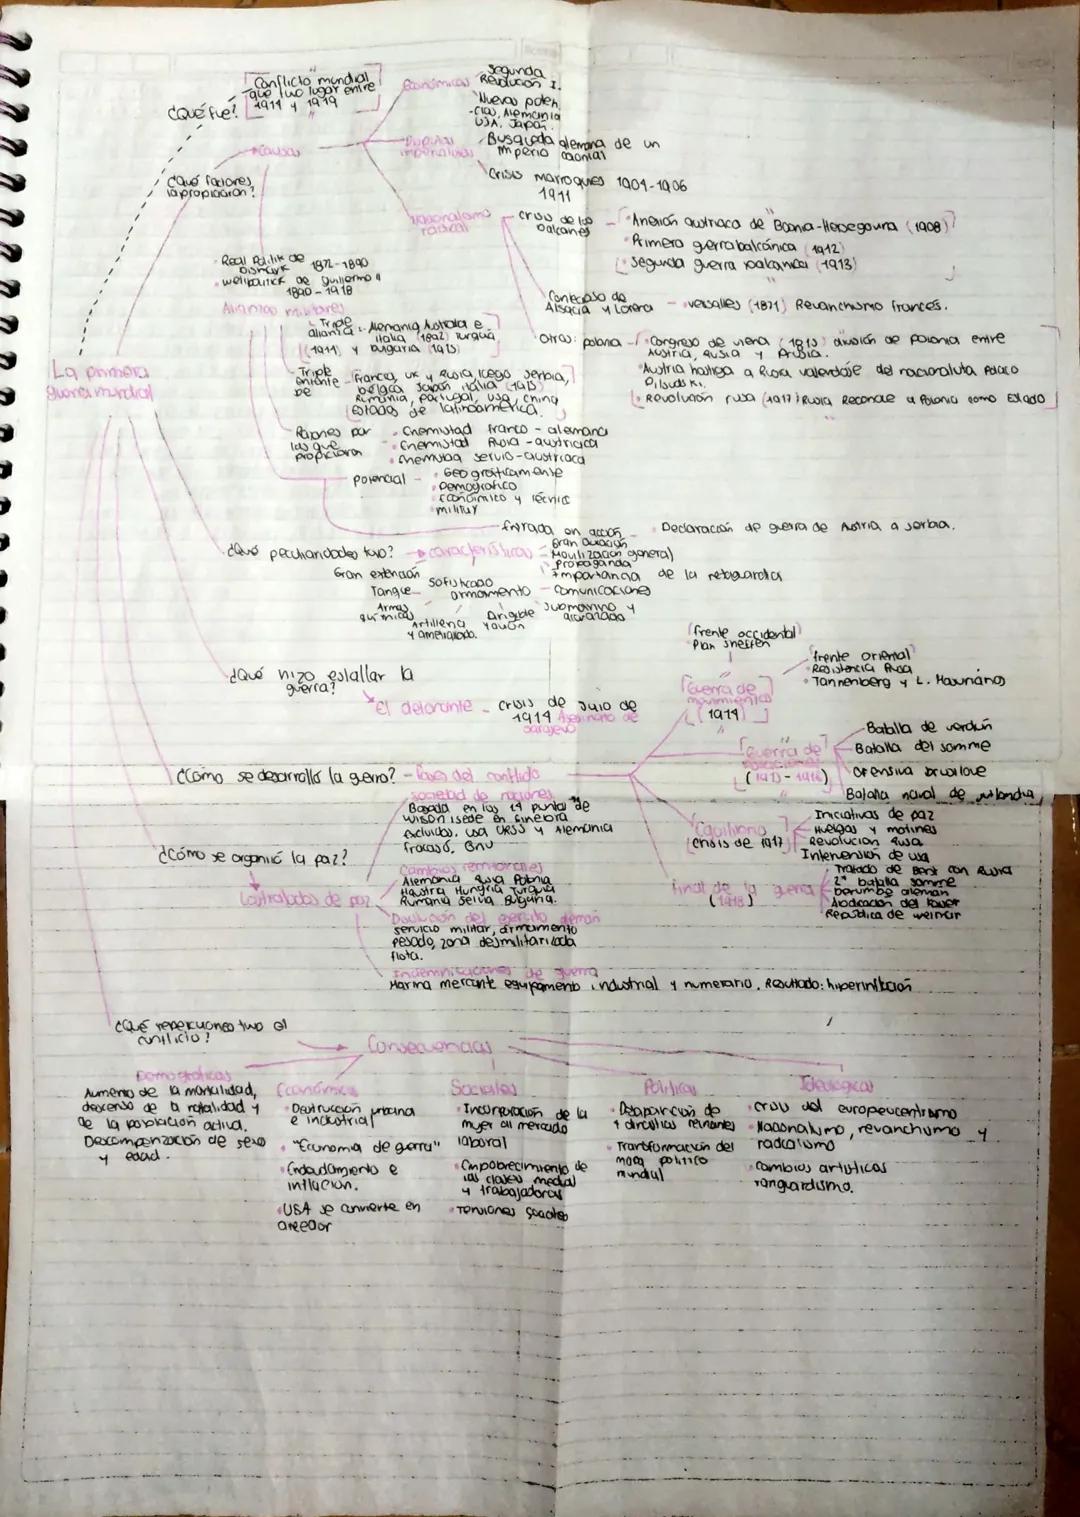 ¿Qué fue?
Conflicto mundial
que tuvo lugar entre
1914 y 1919
Causas
¿Qué factores
la propiciaron?
Económicas
Segunda
Revolución I.
Nuevas poten
-cias, Alemania
USA, Japón.
Disputas
imperialistas
Busqueda alemana de un
imperio colonial
Crisis marroquies 1904-1906
1911
Nacionalismo
radical
crisis de los
balcanes
Anexión austriaca de Bosnia-Herzegovina (1908)
Primera guerra balcánica (1912)
Segunda guerra balcanica (1913)
Contecioso de
Alsacia y Lorena
versalles (1871) Revanchismo francés.
Otros: polonia
Congreso de viena (1815) división de polonia entre
Austria, Rusia y Prusia.
Austria hostiga a Rusia del nacionalista Polaco
Pilsudski.
Revolución rusa (1917) Rusia Reconoce a Polonia como Estado
Real Politik de
Bismark 1871-1890
weltpolitick de Guillermo II
1890-1918
Alianzas militares
Triple
alianza: Alemania, Austria e
italia (1892) Turquia
(1914) y bulgaria (1915)
Triple
entente
de
Francia, UK y Rusia luego serbia,
belgica, Japón, italia (1915)
Rumania, portugal, USA, china
Estados de latinoamerica.
Razones por
las que
propiciaron
Enemistad franco-alemana
Enemistad Rusia-austriaca
enemistad servio-austriaca
potencial
Geograficamente
Demografico
Económico y técnico
militar
La primera
guerra mundial
entrada en acción
Declaración de guerra de Austria a serbia.
¿Qué peculiaridades tuvo?
características
Gran duración
Movilización general
propaganda
Importancia de la retaguardia
Gran extención
sofisticado
armamento
comunicaciones
Tanque
Armas
químicas
Artilleria
y ametrallado.
Dirigible
y avión
submarino y
acorazado
¿Qué hizo estallar la
guerra?
El detonante
crisis de Julio de
1914 Asesinato de
sarajevo
¿Cómo se desarrolló la guerra?
fases del conflicto
Guerra de
movimientos
(1914)
frente occidental
Plan
frente oriental
Resistencia Rusa
Tannenberg y L. Masurianos
Guerra de
posiciones
(1915-1916)
Batalla de verdún
Batalla del somme
Ofensiva brusilove
Batalla naval de jutlandia
Equilibrio
crisis de 1917
Iniciativas de paz
Huelgas y motines
Revolucion rusa
Intervensión de usa
Final de la guerra
(1918)
Tratado de Brest con Rusia
2ª batalla somme
Derrumbe aleman
Abdicacion del kaiser
República de weimar
¿Cómo se organizó la paz?
Los tratados de paz
sociedad de naciones
Basada en los 14 puntos de
wilson, sede en Ginebra
Excluidos, usa URSS y Alemania
fracasó, ONU
Cambios territoriales
Alemania Rusia Polonia
Austria Hungria Turquia
Rumania Servia Bulgaria.
Disolución del ejercito alemán
servicio militar, armamento
pesado, zona desmilitarizada
flota.
Indemnizaciones de guerra
Marina mercante equipamento industrial y numerario. Resultado: hiperinflación
¿Qué repercuciones tuvo el
conflicto?
Consecuencias
Demograficas
Aumento de la mortalidad,
descenso de la natalidad y
de la población activa.
Descompenzación de sexo
y edad.
Económicas
Destrucción urbana
e industrial
"Economia de guerra"
Endeudamiento e
inflación.
USA se convierte en
acreedor
Sociales
Incorporación de la
mujer al mercado
laboral
Empobrecimiento de
las clases medias
y trabajadoras
Tensiones sociales
Políticas
Desaparición de
4 dinastias reinantes
Transformación del
mapa político
mundial
Ideologicas
crisis del europeucentrismo
Nacionalismo, revanchismo y
radicalismo
cambios artísticos
vanguardismo.